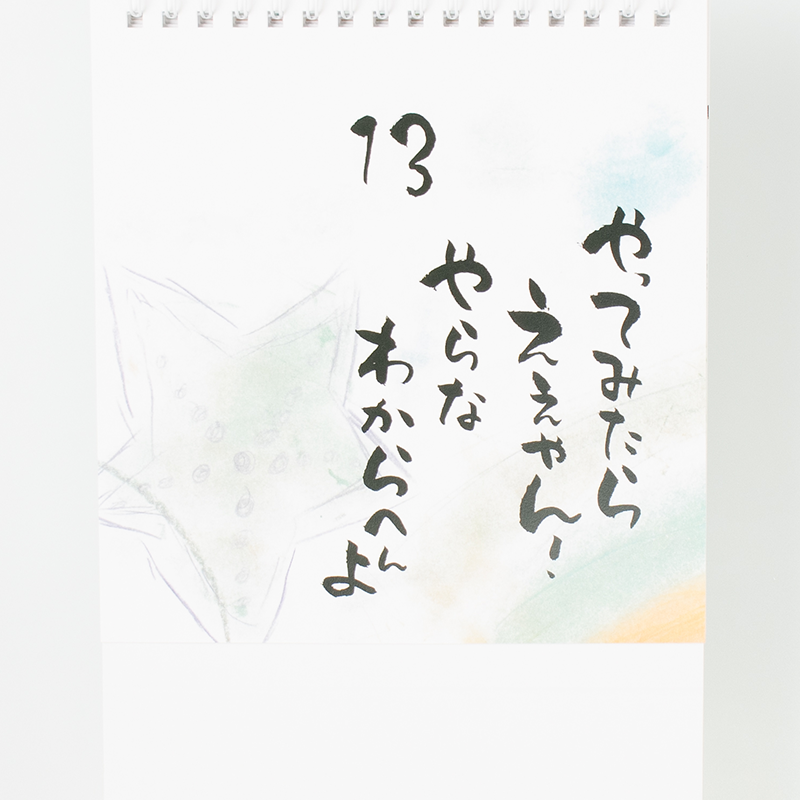 13
やってみたら
ええやん!
やらな
わからへんよ